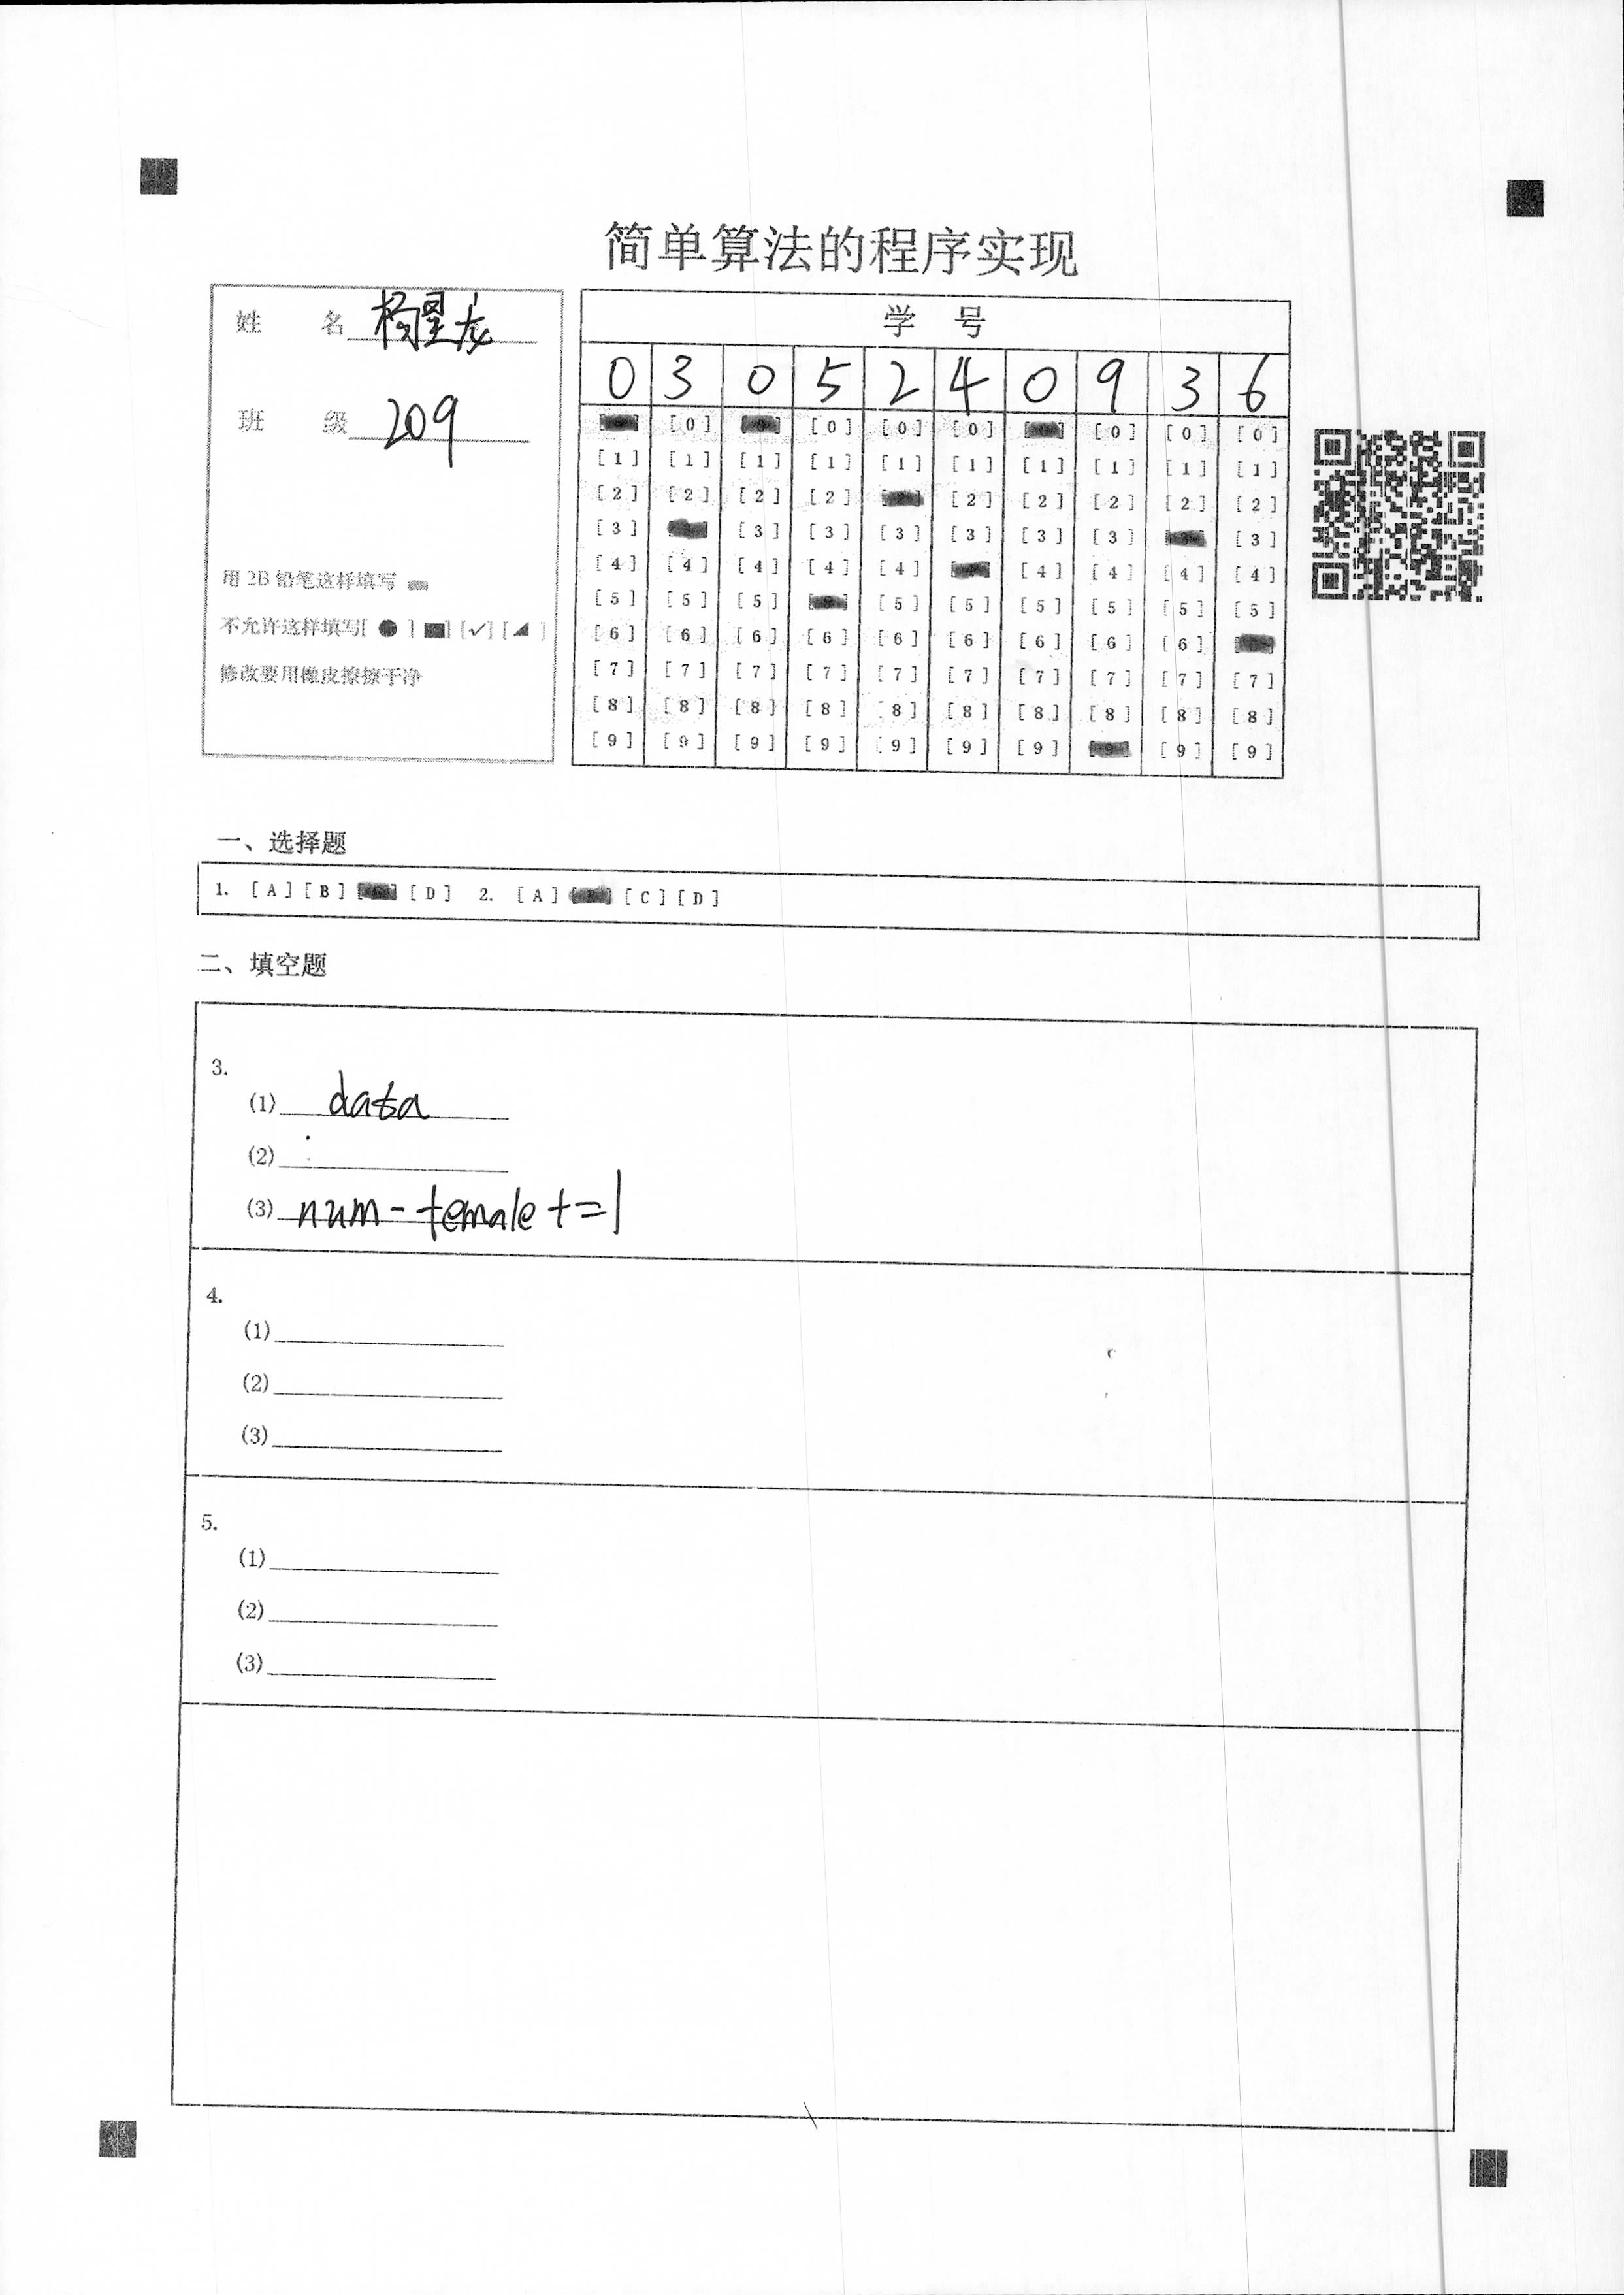 简单算法的程序实现
姓 名 杨星龙
班 级 209
用 2B 铅笔这样填写
不允许这样填写[ ● ] [■] [✓] [◢ ]
修改要用橡皮擦擦干净
学 号
0 3 0 5 2 4 0 9 3 6
[0] [0] [0] [0] [0] [0]
[1] [1] [1] [1] [1] [1] [1] [1] [1] [1]
[2] [2] [2] [2] [2] [2] [2] [2] [2]
[3] [3] [3] [3] [3] [3] [3] [3]
[4] [4] [4] [4] [4] [4] [4] [4] [4]
[5] [5] [5] [5] [5] [5] [5] [5] [5]
[6] [6] [6] [6] [6] [6] [6] [6] [6]
[7] [7] [7] [7] [7] [7] [7] [7] [7] [7]
[8] [8] [8] [8] [8] [8] [8] [8] [8] [8]
[9] [9] [9] [9] [9] [9] [9] [9] [9] [9]
一、选择题
1. [A] [B] [D] 2. [A] [C] [D]
二、填空题
3.
(1) data
(2)
(3) num-female+=1
4.
(1)
(2)
(3)
5.
(1)
(2)
(3)